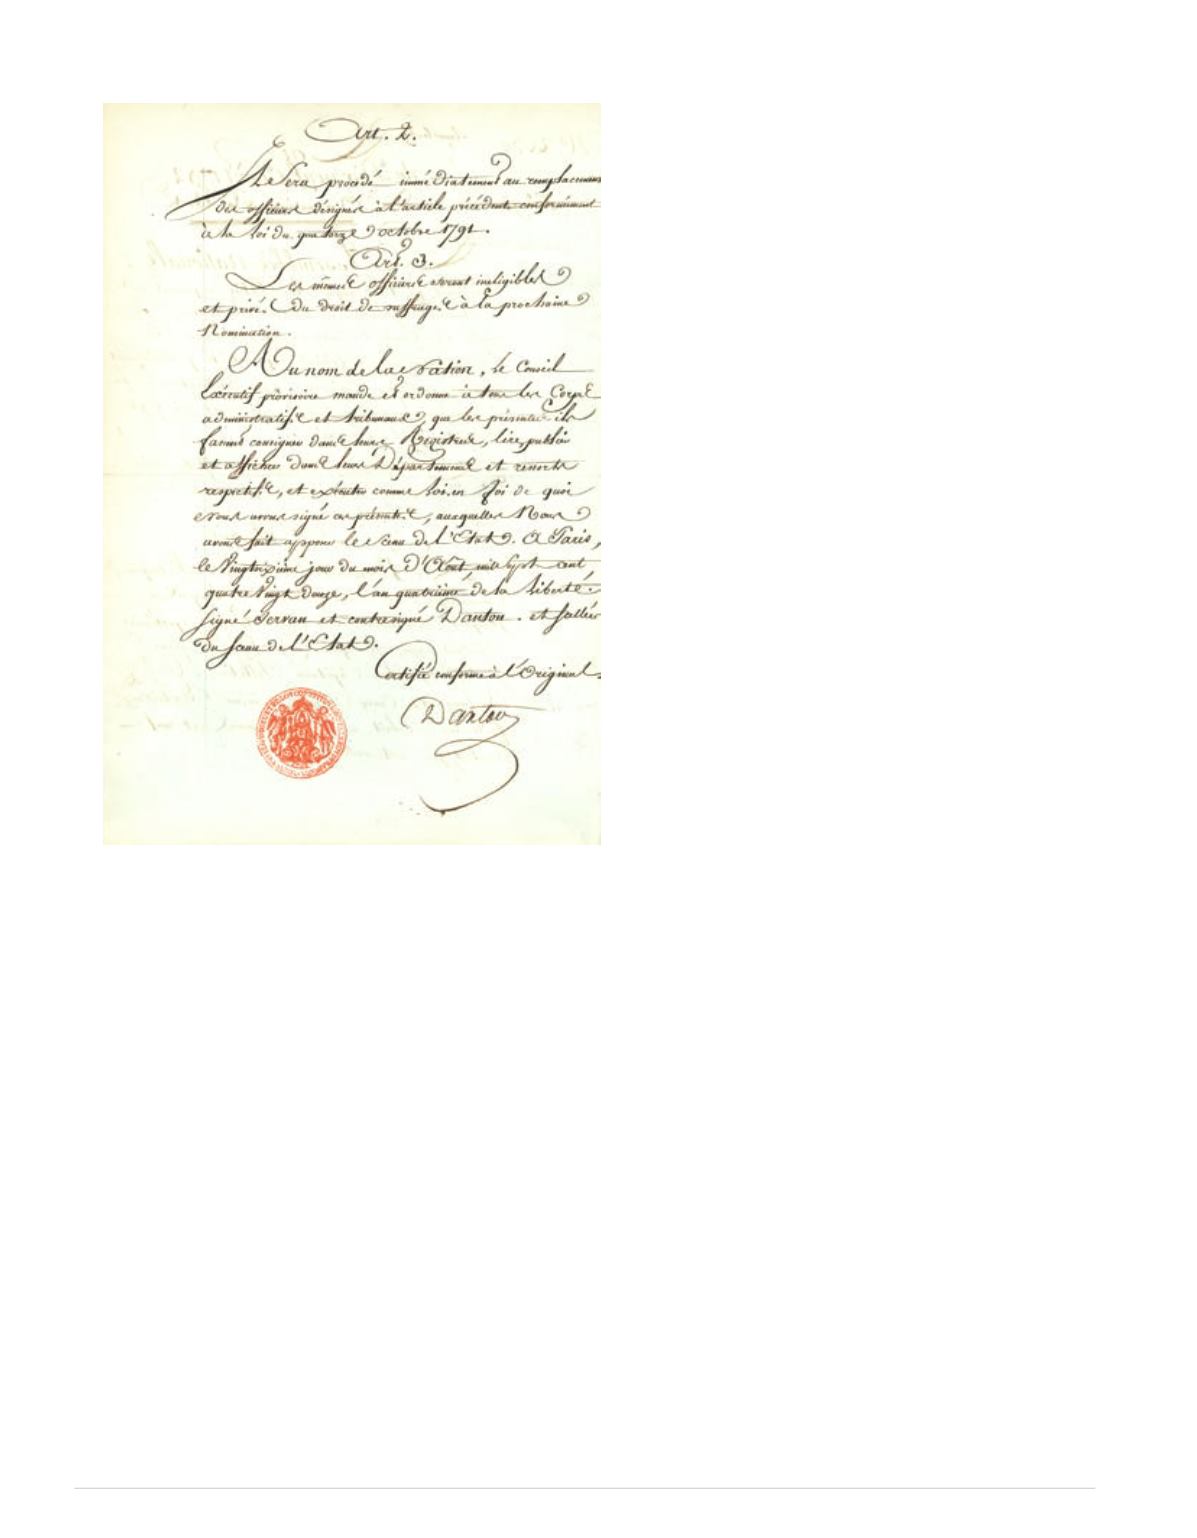 Art. 2.
Il Sera procédé immédiatement au remplacement
des officiers désignés à l'article précédent conformément
à la loi du quatorze octobre 1791.
Art. 3.
Les mêmes officiers seront inéligibles
et privés du droit de suffrage à la prochaine
Nomination.
Au nom de la Nation, le Conseil
Exécutif provisoire mande et ordonne à tous les Corps
administratifs et tribunaux, que les présentes ils
fassent consigner dans leurs Registres, lire, publier
et afficher dans leurs Départements et ressorts
respectifs, et exécuter comme loi. en foi de quoi
Nous avons signé ces présentes, auxquelles Nous
avons fait apposer le sceau de l'Etat. A Paris,
le Vingt jour du mois D'Août, mil Sept cent
quatre Vingt douze, l'an quatrième de la liberté.
Signé Servan et contresigné Danton. et scellée
du Sceau de l'Etat.
Certifié conforme à l'Original.
Danton